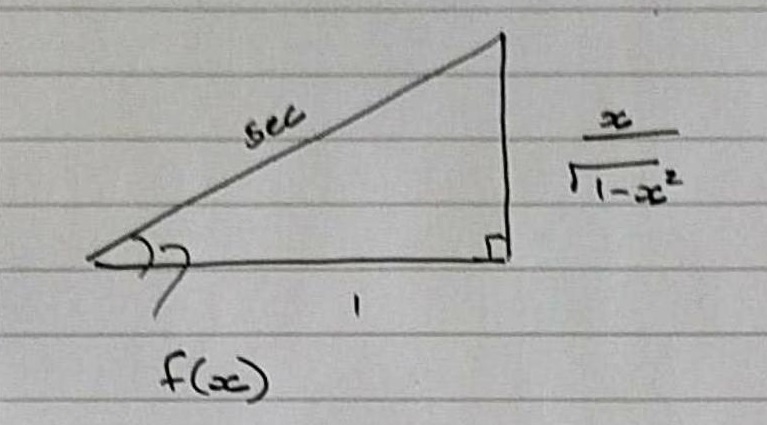 sec
x
√1-x²
1
f(x)